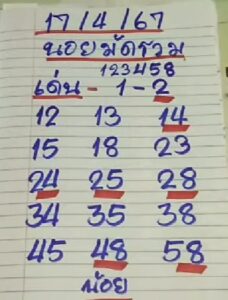 17/4/67
นอยมัดรวม
123458
เด่น - 1-2
12 13 14
15 18 23
24 25 28
34 35 38
45 48 58
น้อย